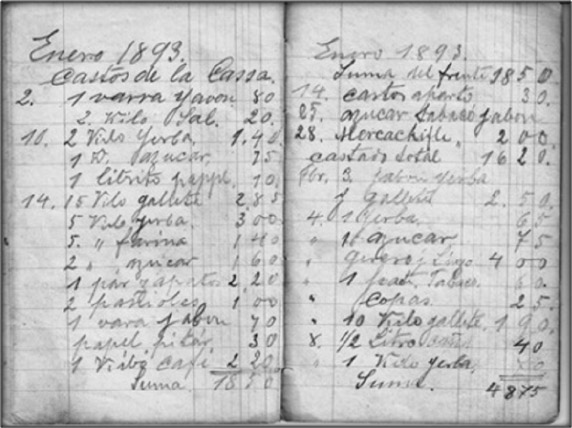 Enero 1893.
Gastos de la Cassa.
2. 1 varra yavon 80
2 Kilo Sal. 20.
10. 2 Kilo Yerba. 1.40
1 K. azucar 75
1 librito pappl. 10
14. 15 Kilo gallete 2.85
5 Kilo yerba. 3 00
5. " farina 1 40
2 " azucar 1 60
1 par zapatos 2.20
2 1 00
1 vara jabon 70
papel pitar 30
1 Kilo café 2 20
Suma. 18 50
Enero 1893.
Suma del frente 18 5 0.
14. castos aparto 3 0.
25. azucar tabaco jabon
28. Mercachifle. 2 0 0.
castado total 16 2 0.
Fbr. 3. jabon yerba
gallete 2. 50.
4. 1 Yerba. 65
" azucar, 75
" 4 00
" 1 Tabaco. 60.
" copas. 25.
" 10 Kilo gallete. 1 90.
8. 1/2 Litro 40
" 1 Kilo yerba.
Suma. 4875